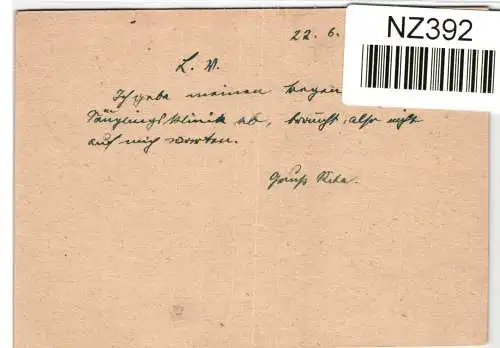 NZ392
22. 6.
L. V.
Ich gebe meinen
Säuglingsklinik ab, brauchst, also nicht
auf mich warten.
Gruß Rita.